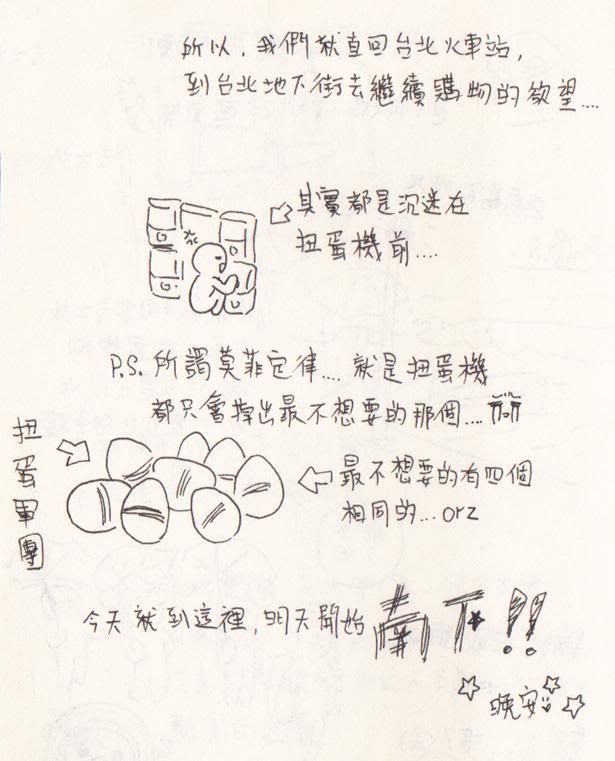 所以，我們就直回台北火車站，
到台北地下街去繼續購物的欲望....
其實都是沉迷在
扭蛋機前....
P.S. 所謂莫菲定律.... 就是扭蛋機
都只會掉出最不想要的那個....
扭蛋軍團
最不想要的有四個
相同的...orz
今天就到這裡，明天開始
晚安